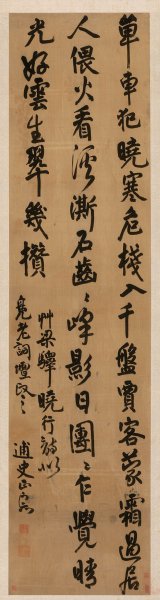 單車犯曉寒危棧入千盤賈客蒙霜過居
人偎火看溪澌石齒〻峰影日團〻乍覺晴
光好雲生翠幾攢
艸梁驛曉行詩似
老詞壇政之
逋史正賓